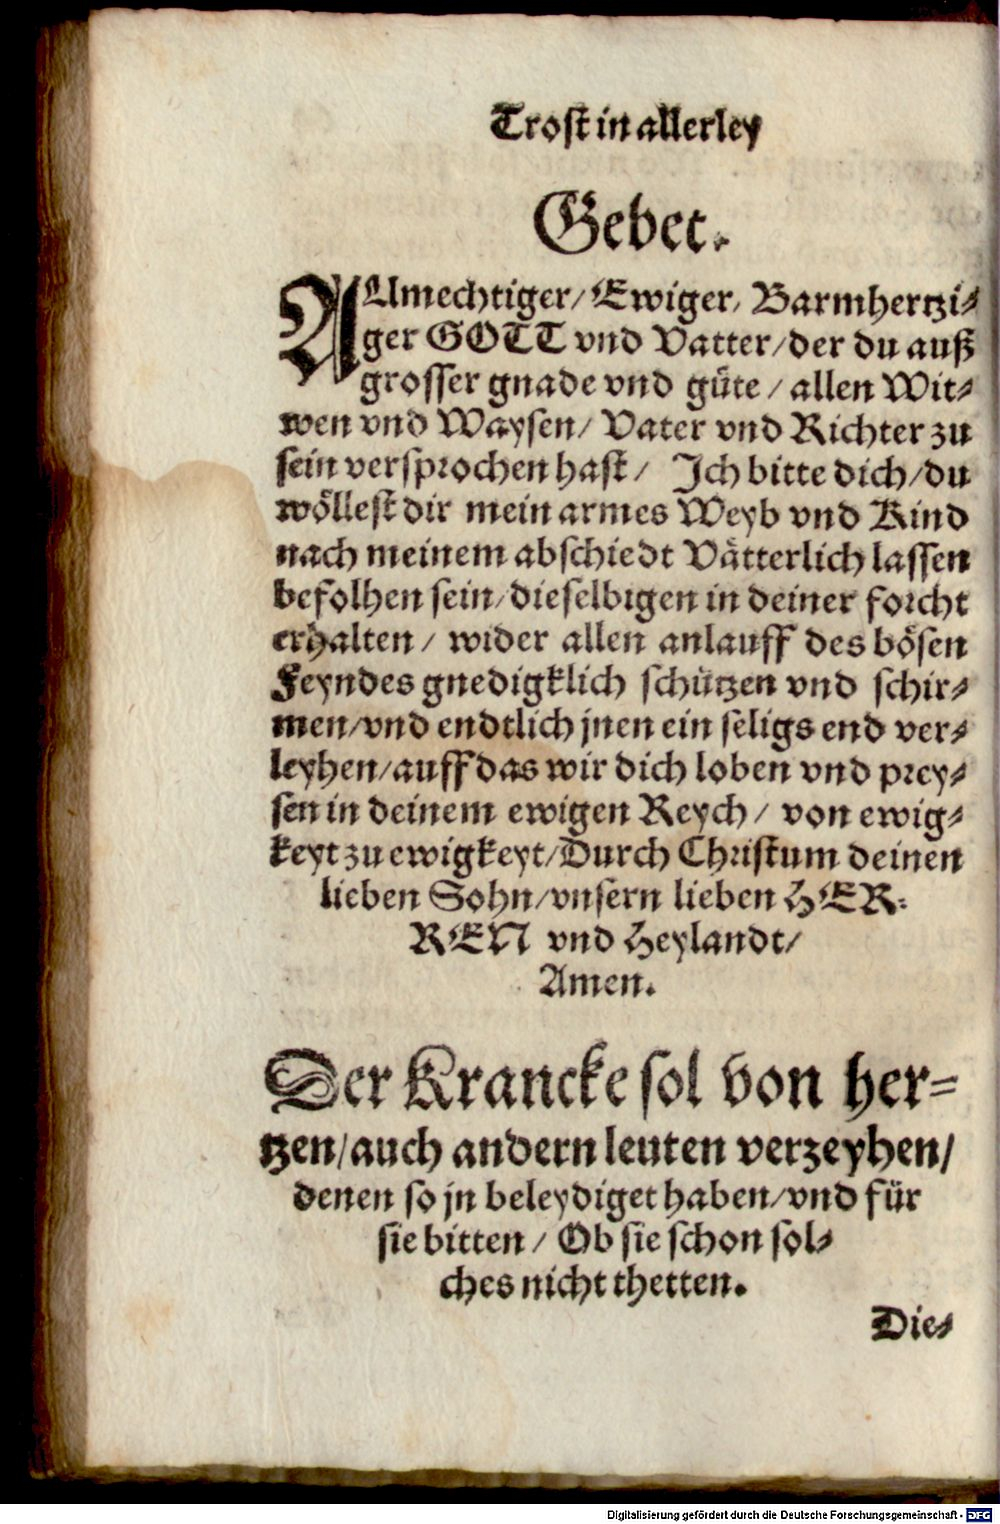 Trost in allerley
Gebet.
Allmechtiger/ Ewiger/ Barmhertzi⸗
ger GOTT vnd Vatter/ der du auß
grosser gnade vnd güte / allen Wit⸗
wen vnd Waysen/ Vater vnd Richter zu
sein versprochen hast/ Ich bitte dich/ du
wöllest dir mein armes Weyb vnd Kind
nach meinem abschiedt Vätterlich lassen
befolhen sein/ dieselbigen in deiner forcht
erhalten / wider allen anlauff des bösen
Feyndes gnedigklich schützen vnd schir⸗
men/ vnd endtlich jnen ein seligs end ver⸗
leyhen/ auff das wir dich loben vnd prey⸗
sen in deinem ewigen Reych / von ewig⸗
keyt zu ewigkeyt/ Durch Christum deinen
lieben Sohn/ vnsern lieben HER⸗
REN vnd Heylandt/
Amen.
Der Krancke sol von her⸗
tzen/ auch andern leuten verzeyhen/
denen so jn beleydiget haben/ vnd für
sie bitten / Ob sie schon sol⸗
ches nicht thetten.
Die⸗
Digitalisierung gefördert durch die Deutsche Forschungsgemeinschaft - DFG